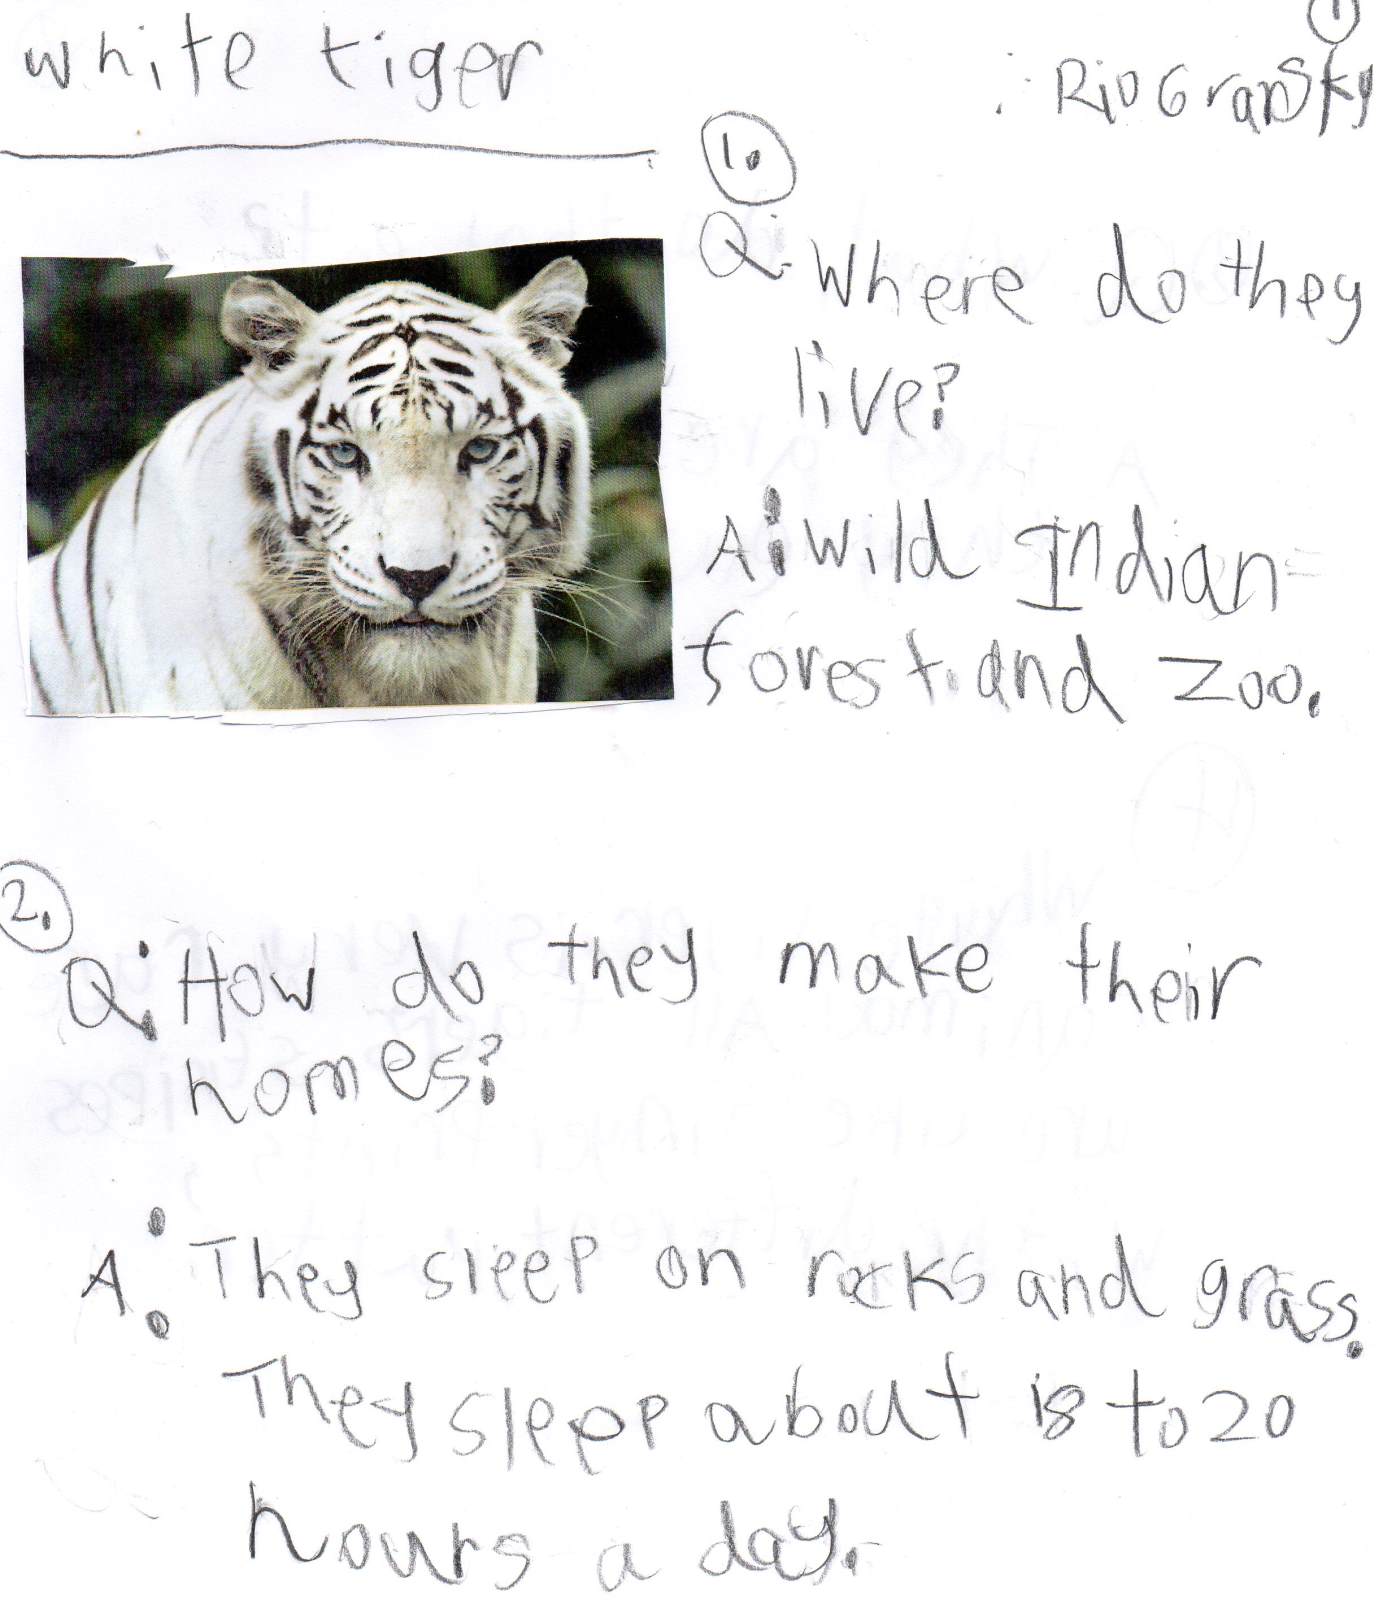 ①
white tiger
Rio Gransky
1.
Q. Where do they
live?
A: Wild Indian-
forest. and Zoo.
2.
Q: How do they make their
homes?
A: They sleep on rocks and grass.
They sleep about 18 to 20
hours a day.